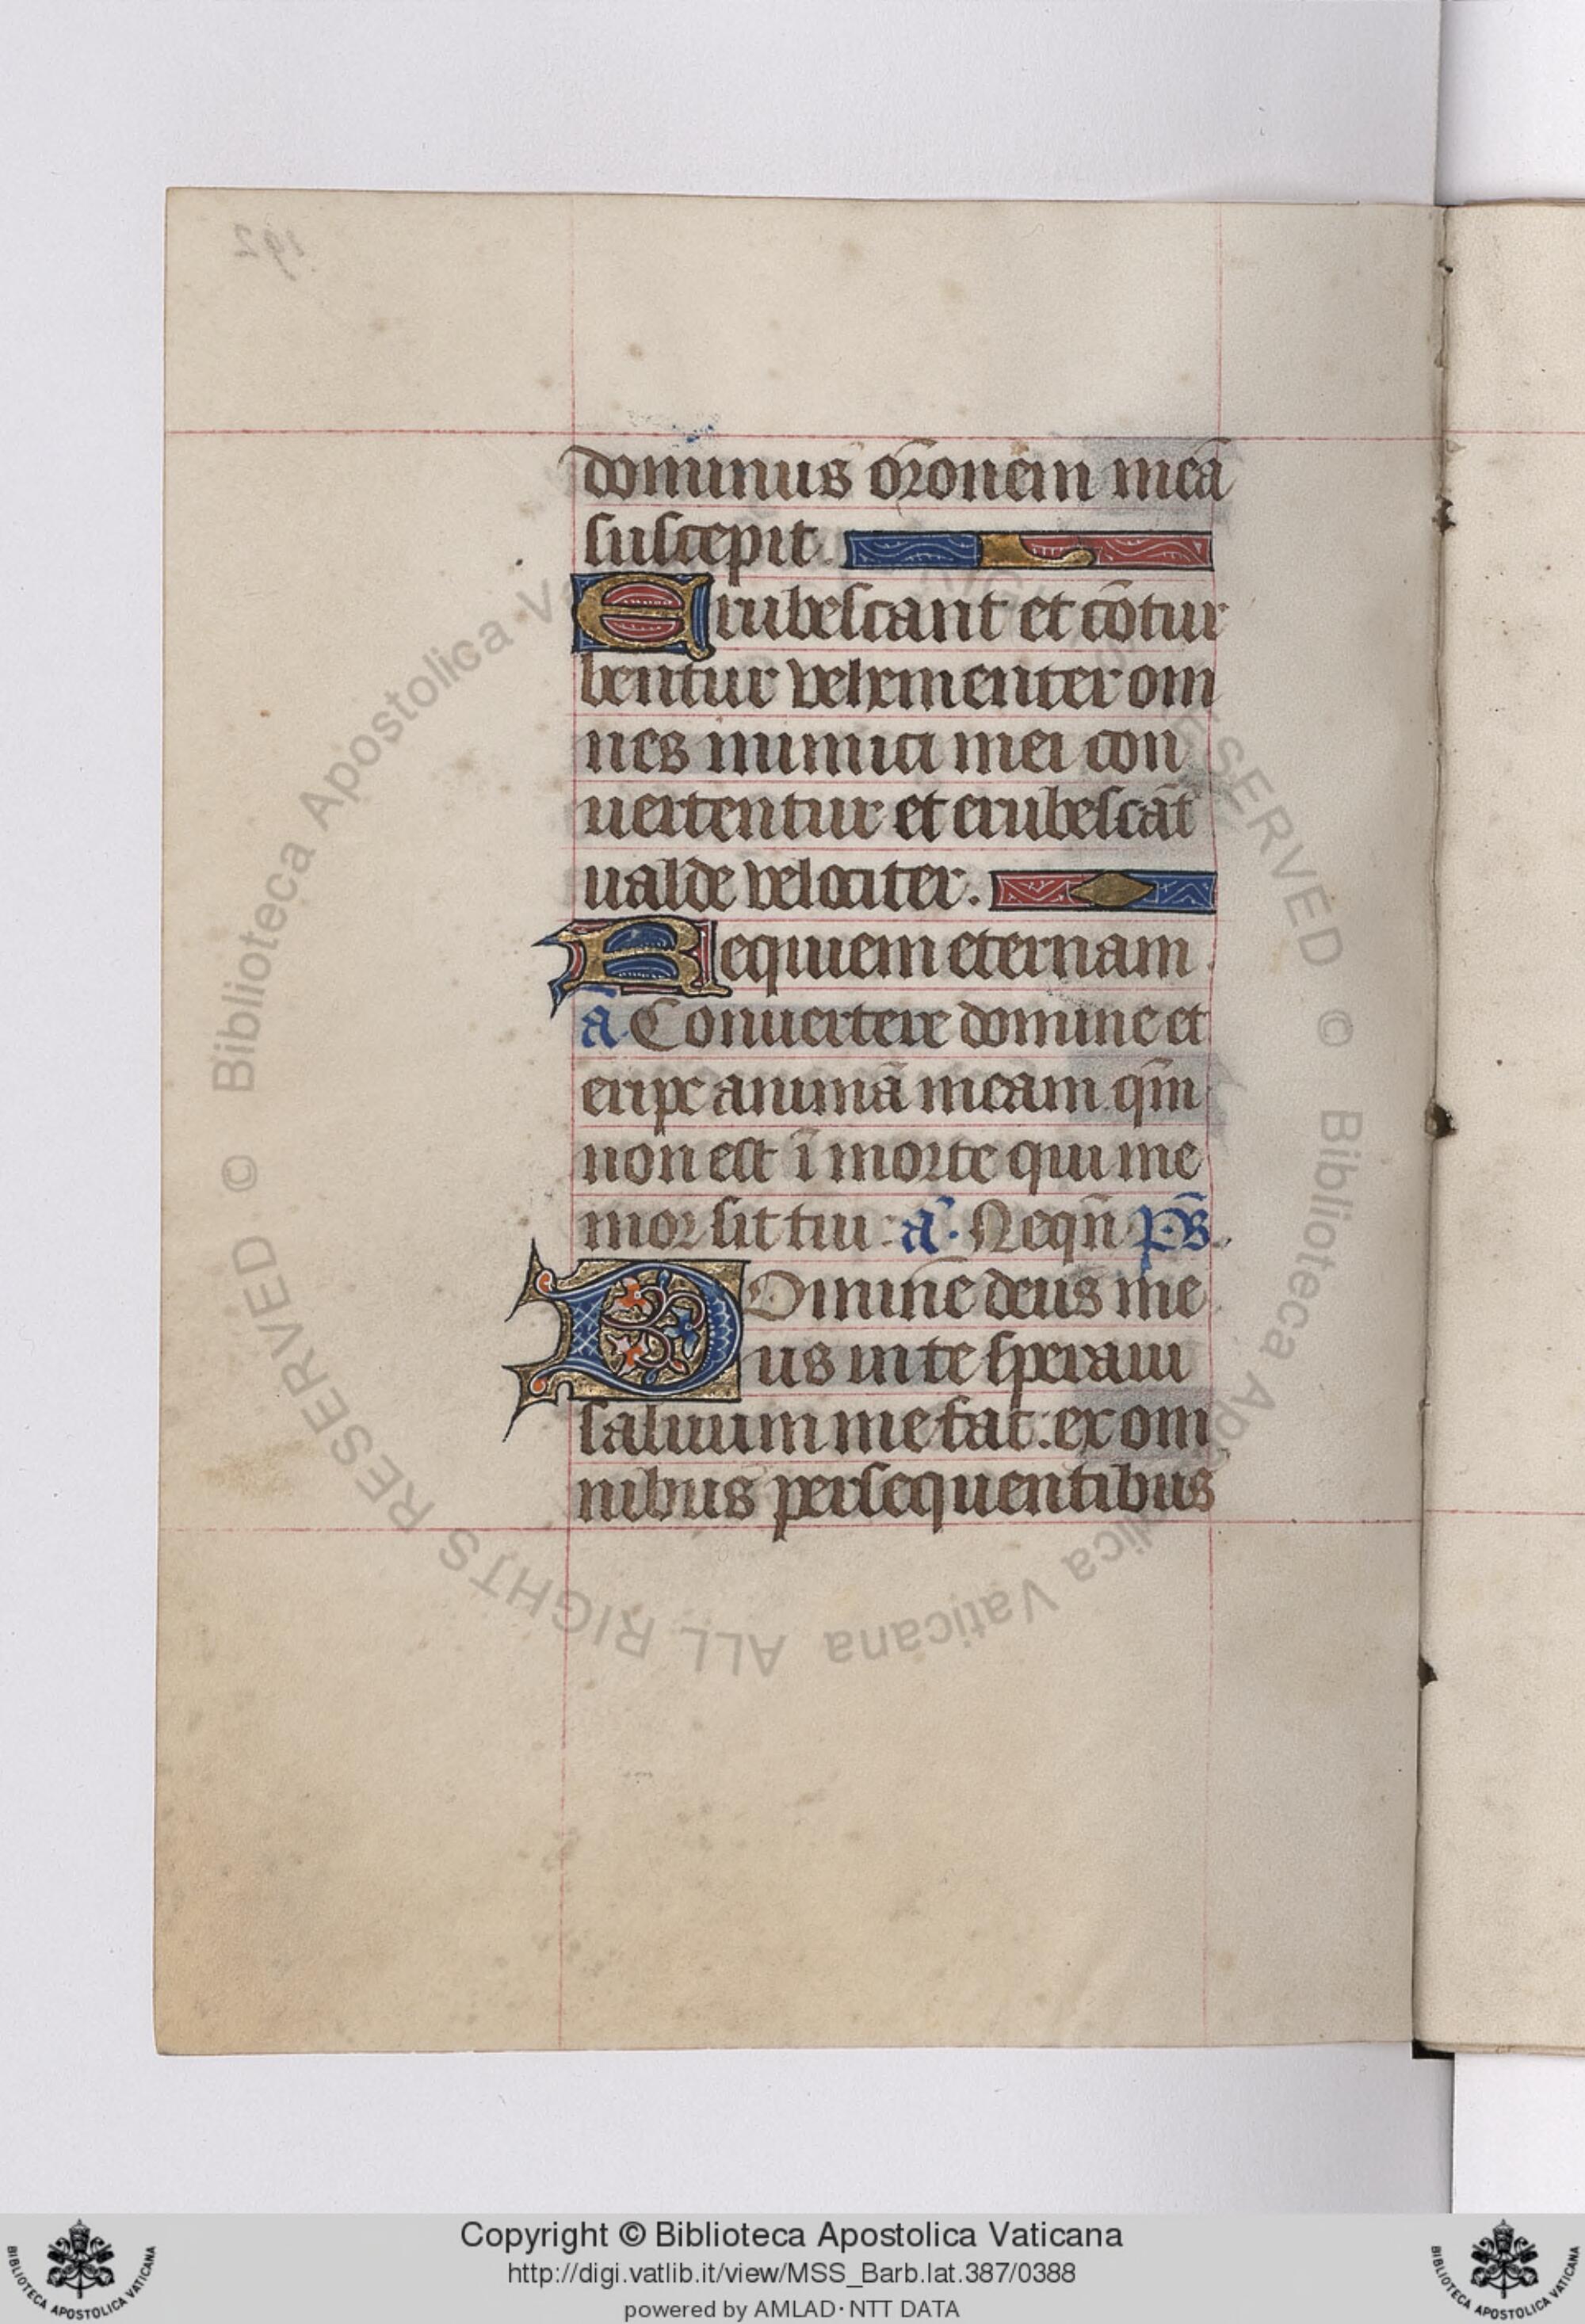 192
dominus or̄onem meā
suscepit.
Erubescant et cōtur
bentur vehementer om
nes inimici mei con
uertentur et erubescāt
ualde velociter.
Requiem eternam
ā. Conuertere domine et
eripe animā meam. qm̄
non est ī morte qui me
mor sit tui. ā. Nequn̄ p̄s.
Domine deus me
us in te speraui
saluum me fac. ex om
nibus persequentibus
© Biblioteca Apostolica Vaticana ALL RIGHTS RESERVED
© Biblioteca Apostolica Vaticana ALL RIGHTS RESERVED
Copyright © Biblioteca Apostolica Vaticana
http://digi.vatlib.it/view/MSS_Barb.lat.387/0388
powered by AMLAD·NTT DATA
BIBLIOTECA APOSTOLICA VATICANA
BIBLIOTECA APOSTOLICA VATICANA